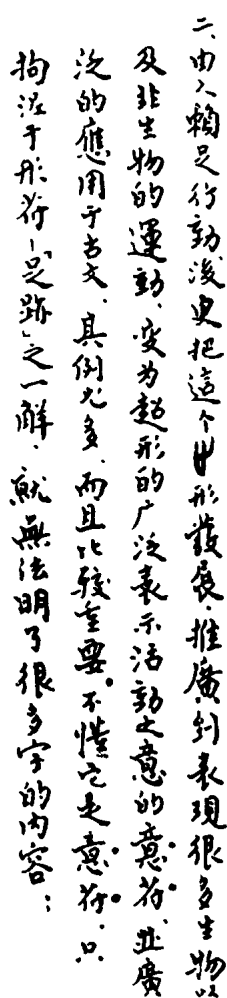 二、由人賴足行動後更把這个止形發展．推廣到表現很多生物以
及非生物的運動、変为超形的广泛表示活動之意的意符、並廣
泛的應用于古文、其例尤多、而且比較重要。不懂它是意符、只
拘泥于形符「足跡」之一解．就無法明了很多字的内容：